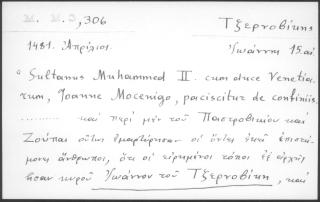 M. M. 3, 306 Τζερνοβίκης
1481. Ἀπρίλιος. Ἰωάννη 15.αἰ
"Sultanus Muhammed II. cum duce Venetia-
rum, Joanne Mocenigo, paciscitur de confiniis
.......... καὶ περὶ μὲν τοῦ Παστροβικίου καὶ
Ζούπαι οὕτως ἐμαρτύρησαν οἱ ὄντες ἐκεῖ ἐπιστή-
μονες ἄνθρωποι, ὅτι οἱ εἰρημένοι τόποι ἐξ ἀρχῆς
ἦσαν κυροῦ Ἰωάννου τοῦ Τζερνοβίκη, καὶ